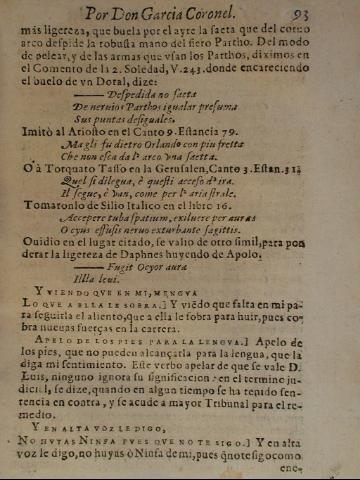 Por Don Garcia Coronel. 93
más ligereza, que buela por el ayre la saeta que del corno
arco despide la robusta mano del fiero Partho. Del modo
de pelear, y de las armas que vsan los Parthos, diximos en
el Comento de la 2. Soledad, V. 243. donde encareciendo
el buelo de vn Doral, dize:
Despedida no saeta
De neruios Parthos igualar presuma
Sus puntas desiguales.
Imitò al Ariosto en el Canto 9. Estancia 79.
Ma gli fu dietro Orlando con piu fretta
Che non esca da l'arco vna saetta.
O à Torquato Tasso en la Gerusalen, Canto 3. Estan. 31.
Quel si dilegua, è questi acceso d'ira.
Il segue, è van, come per l'aria strale.
Tomaronlo de Silio Italico en el libro 16.
Accepere tuba spatium, exiluere per auras
O cyus effusis neruo exturbante sagittis.
Ouidio en el lugar citado, se valio de otro simil, para pon
derar la ligereza de Daphnes huyendo de Apolo.
Fugit Ocyor aura
Illa leui.
Y VIENDO QVE EN MI, MENGVA
LO QVE A ELLA LE SOBRA.] Y viẽdo que falta en mi pa-
ra seguirla el aliento, que a ella le sobra para huir, pues co-
bra nueuas fuerças en la carrera.
APELO DE LOS PIES PARA LA LENGVA.] Apelo de
los pies, que no pueden alcançarla para la lengua, que la
diga mi sentimiento. Este verbo apelar de que se vale D.
Luis, ninguno ignora su significacion: en el termino ju-
dicial, se dize, quando en algun tiempo se ha tenido sen-
tencia en contra, y se acude a mayor Tribunal para el re-
medio.
Y EN ALTA VOZ LE DIGO,
NO HVYAS NINFA PVES QVE NO TE SIGO.] Y en alta
voz le digo, no huyas ò Ninfa de mi, pues q̃ no te sigo como
ene-